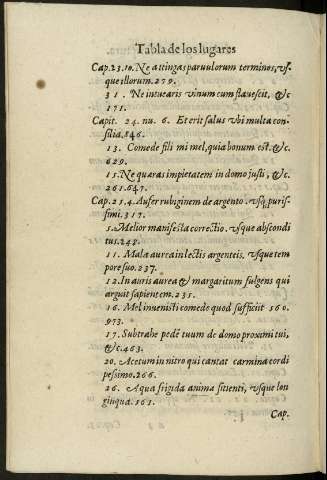 Tabla de los lugares
Cap. 23.10. Ne attingas paruulorum terminos, vs-
que illorum. 279.
31. Ne intuearis vinum cum flauescit, &c
171.
Capit. 24. nu. 6. Et erit salus vbi multa con-
silia. 846.
13. Comede fili mi mel, quia bonum est. &c.
629.
15. Ne quæras impietatem in domo justi, &c.
261.647.
Cap. 25.4. Aufer rubiginem de argento. vsq; puris-
simi. 317.
5. Melior manifesta correctio. vsque abscondi
tus. 242.
11. Mala aurea in lectis argenteis, vsque tem
pore suo. 237.
12. In auris aurea & margaritum fulgens qui
arguit sapientem. 235.
16. Mel inuenisti comede quod sufficiit 560.
973.
17. Subtrahe pedē tuum de domo proximi tui,
&c. 463.
20. Acetum in nitro qui cantat carmina cordi
pessimo. 266.
26. Aqua frigida anima sitienti, vsque lon
ginqua. 561.
Cap.